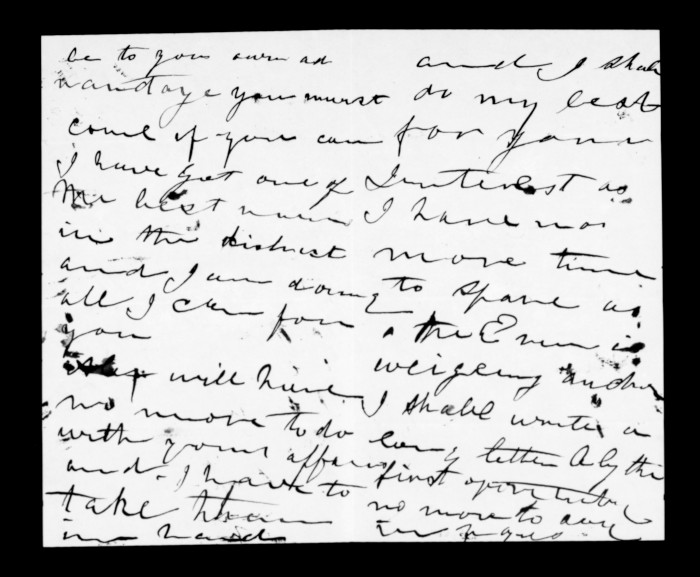 be to your own ad
vantage you must
come if you can
I have got one of
the best men
in the district
and I am doing
all I can for
you
will have
no more to do
with your affairs
and I have to
take them
in hand
and I shall
do my best
for your
Interest as
I have no
more time
to spare as
the Emu is
weigeing anchor
I shall write a
long letter by the
first opportunity
no more to say